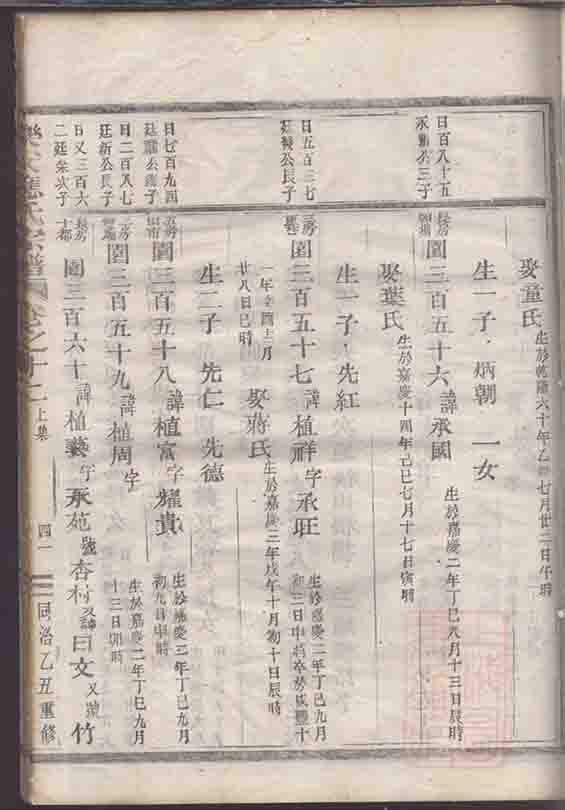 娶童氏 生於乾隆六十年乙卯七月廿二日午時
生一子 炳朝 一女
日百八十五
承
三子
長房
園三百五十六 諱承國 生於嘉慶二年丁巳八月十三日辰時
娶葉氏 生於嘉慶十四年己巳七月十七日寅時
生一子 先紅
日五百三七
廷
公長子
園三百五十七 諱植祥 字承旺 生於嘉慶二年丁巳九月
初三日申時卒於咸豐十
一年辛酉十二月
廿八日巳時
娶蔣氏 生於嘉慶三年戊午十月初十日辰時
生二子 先仁 先德
日七百九四
廷
公
子
園三百五十八 諱植富 字耀貴 生於嘉慶二年丁巳九月
初九日申時
日二百八七
廷新公長子
園三百五十九 諱植周 字 生於嘉慶二年丁巳九月
十三日卯時
日又三百六
二廷榮次子
長房
十都
園三百六十 諱植藝 字承苑 號杏村 又諱曰文 又號竹
應氏宗譜
卷之十二 上集
四一
同治乙丑重修